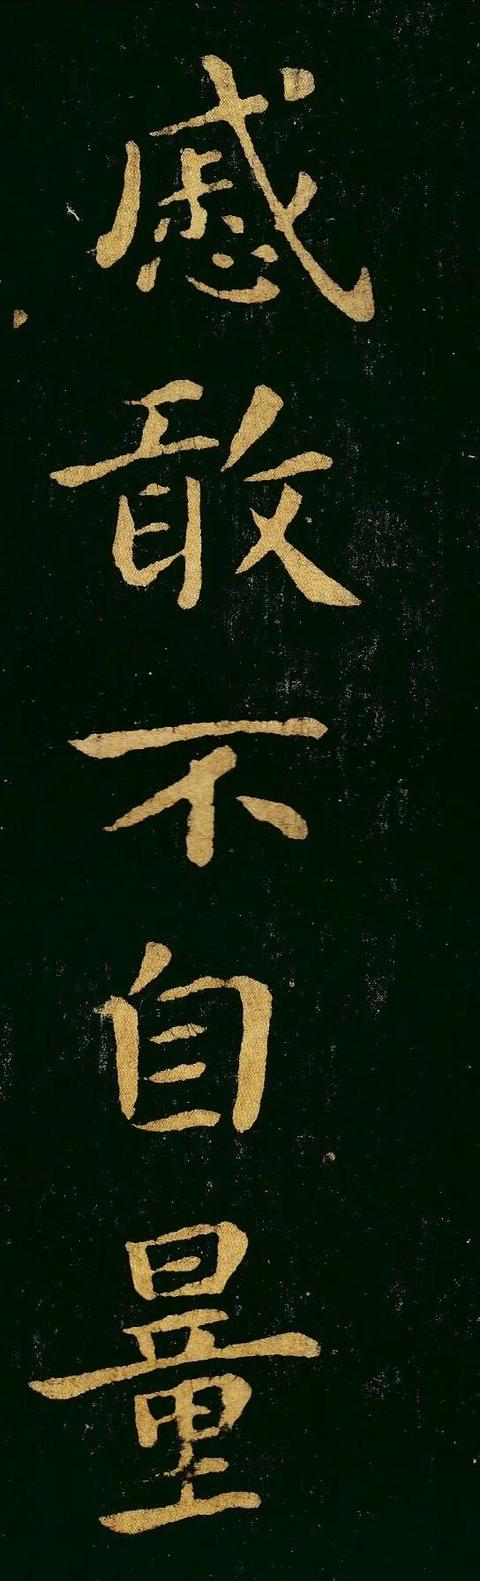 慼敢不自量